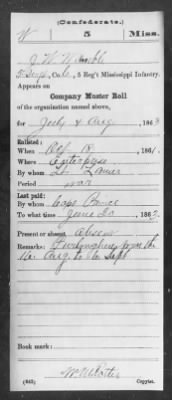 (Confederate.)
W 5 Miss.
J. W. Wamble
, Co. , 5 Reg't Mississippi Infantry.
Appears on
Company Muster Roll
of the organization named above,
for July & Aug, 1863
Enlisted:
When Oct 18, 1861.
Where Enterprise
By whom Lt. Lanier
Period war
Last paid:
By whom Capt.
To what time June 30, 1863.
Present or absent Absent
Remarks: Furloughed from the
16 Aug. to the Sept
Book mark:
(642) Copyist.